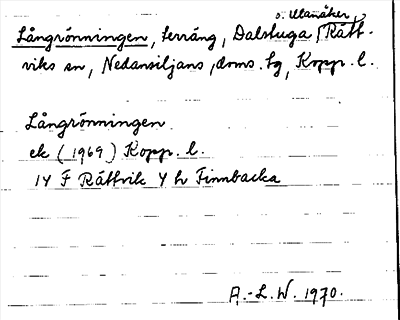 o. Utanåker,
Långrönningen, terräng, Dalstuga, Rätt-
viks sn, Nedansiljans doms. tg, Kopp. l.
Långrönningen
ek (1969) Kopp. l.
14 F Rättvik 4 h Finnbacka
A.-L. W. 1970.